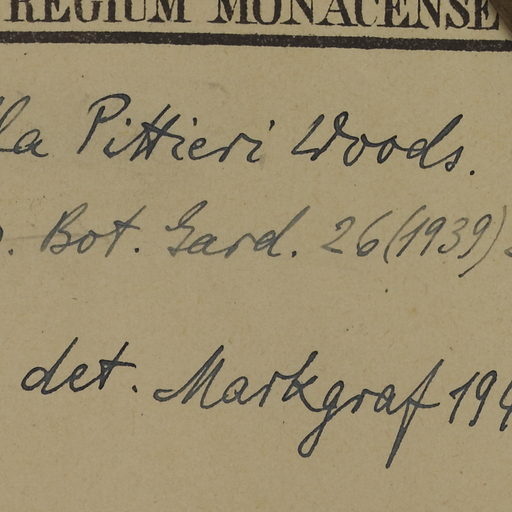 REGIUM MONACENSE
la Pittieri Woods.
. Bot. Gard. 26 (1939)
det. Markgraf 194